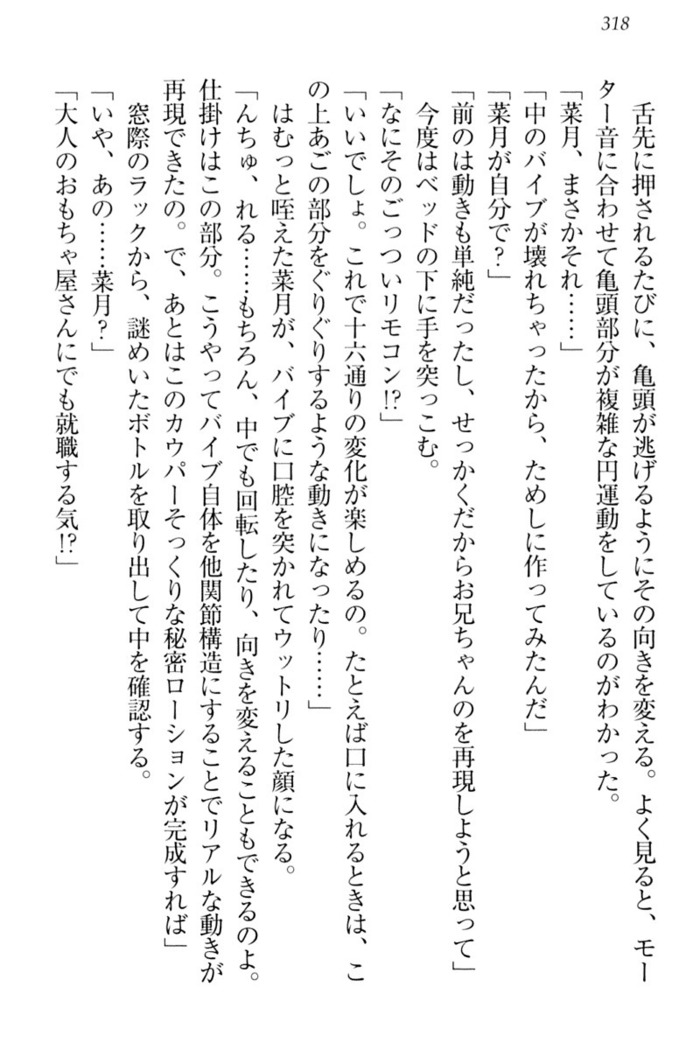 318
舌先に押されるたびに、亀頭が逃げるようにその向きを変える。よく見ると、モー
ター音に合わせて亀頭部分が複雑な円運動をしているのがわかった。
「菜月、まさかそれ……」
「中のバイブが壊れちゃったから、ためしに作ってみたんだ」
「菜月が自分で？」
「前のは動きも単純だったし、せっかくだからお兄ちゃんのを再現しようと思って」
今度はベッドの下に手を突っこむ。
「なにそのごっついリモコン!?」
「いいでしょ。これで十六通りの変化が楽しめるの。たとえば口に入れるときは、こ
の上あごの部分をぐりぐりするような動きになったり……」
はむっと咥えた菜月が、バイブに口腔を突かれてウットリした顔になる。
「んちゅ、れる……もちろん、中でも回転したり、向きを変えることもできるのよ。
仕掛けはこの部分。こうやってバイブ自体を他関節構造にすることでリアルな動きが
再現できたの。で、あとはこのカウパーそっくりな秘密ローションが完成すれば」
窓際のラックから、謎めいたボトルを取り出して中を確認する。
「いや、あの……菜月？」
「大人のおもちゃ屋さんにでも就職する気!?」